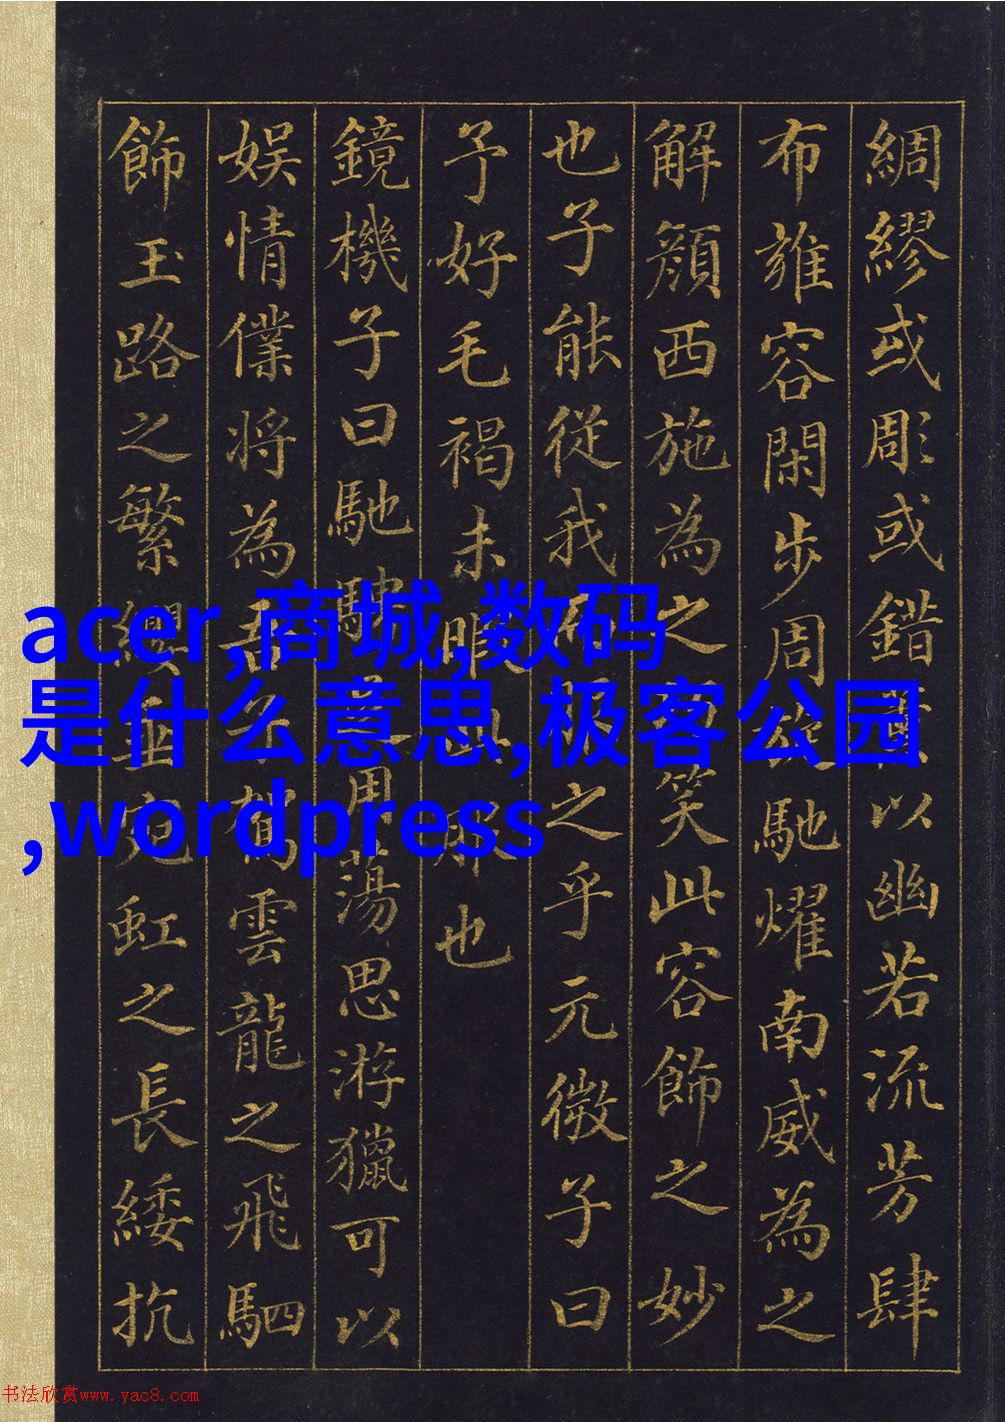 綢繆或彫或錯以幽若流芳肆
布雍容閑步周馳耀南威為之
解顏西施為之笑此容飾之妙
也子能從我之乎元微子曰
予好毛褐未暇此服也
鏡機子曰馳騁用蕩思游獵可以
娛情僕將為吾子駕雲龍之飛駟
飾玉路之繁纓垂宛虹之長綏抗
acer,商城,数码
是什么意思,极客公园
,wordpress
书法欣赏www.yac8.com